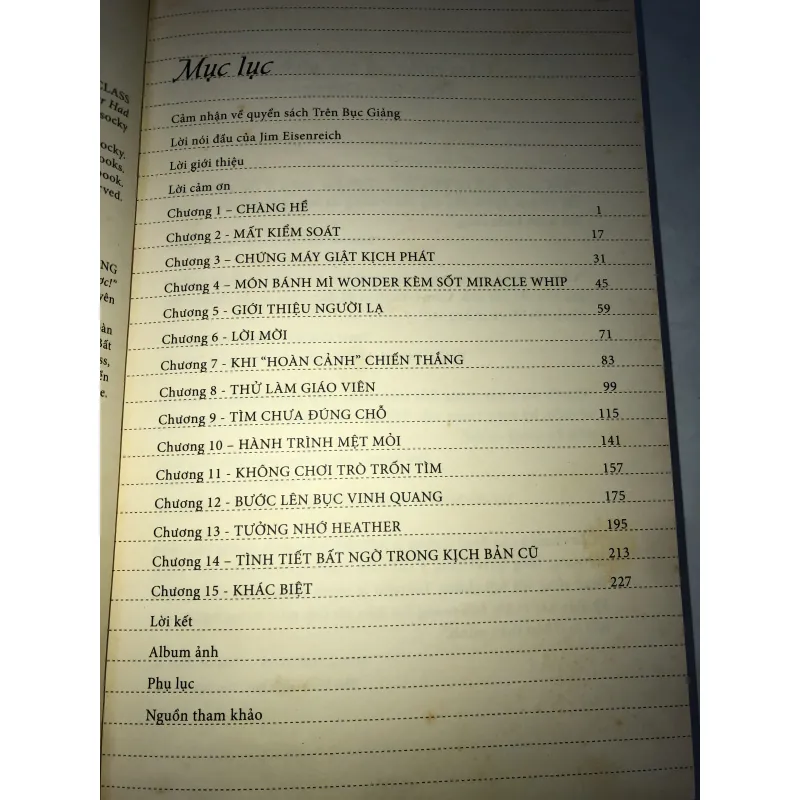 CLASS
Had
socky
ocky.
ooks.
book.
rved.
NG
ợc!"
yên
àn
Bất
ss,
ển
e.
Mục lục
Cảm nhận về quyển sách Trên Bục Giảng
Lời nói đầu của Jim Eisenreich
Lời giới thiệu
Lời cảm ơn
Chương 1 – CHÀNG HỀ 1
Chương 2 - MẤT KIỂM SOÁT 17
Chương 3 – CHỨNG MÁY GIẬT KỊCH PHÁT 31
Chương 4 – MÓN BÁNH MÌ WONDER KÈM SỐT MIRACLE WHIP 45
Chương 5 - GIỚI THIỆU NGƯỜI LẠ 59
Chương 6 - LỜI MỜI 71
Chương 7 - KHI “HOÀN CẢNH” CHIẾN THẮNG 83
Chương 8 - THỬ LÀM GIÁO VIÊN 99
Chương 9 - TÌM CHƯA ĐÚNG CHỖ 115
Chương 10 – HÀNH TRÌNH MỆT MỎI 141
Chương 11 - KHÔNG CHƠI TRÒ TRỐN TÌM 157
Chương 12 - BƯỚC LÊN BỤC VINH QUANG 175
Chương 13 - TƯỞNG NHỚ HEATHER 195
Chương 14 – TÌNH TIẾT BẤT NGỜ TRONG KỊCH BẢN CŨ 213
Chương 15 - KHÁC BIỆT 227
Lời kết
Album ảnh
Phụ lục
Nguồn tham khảo